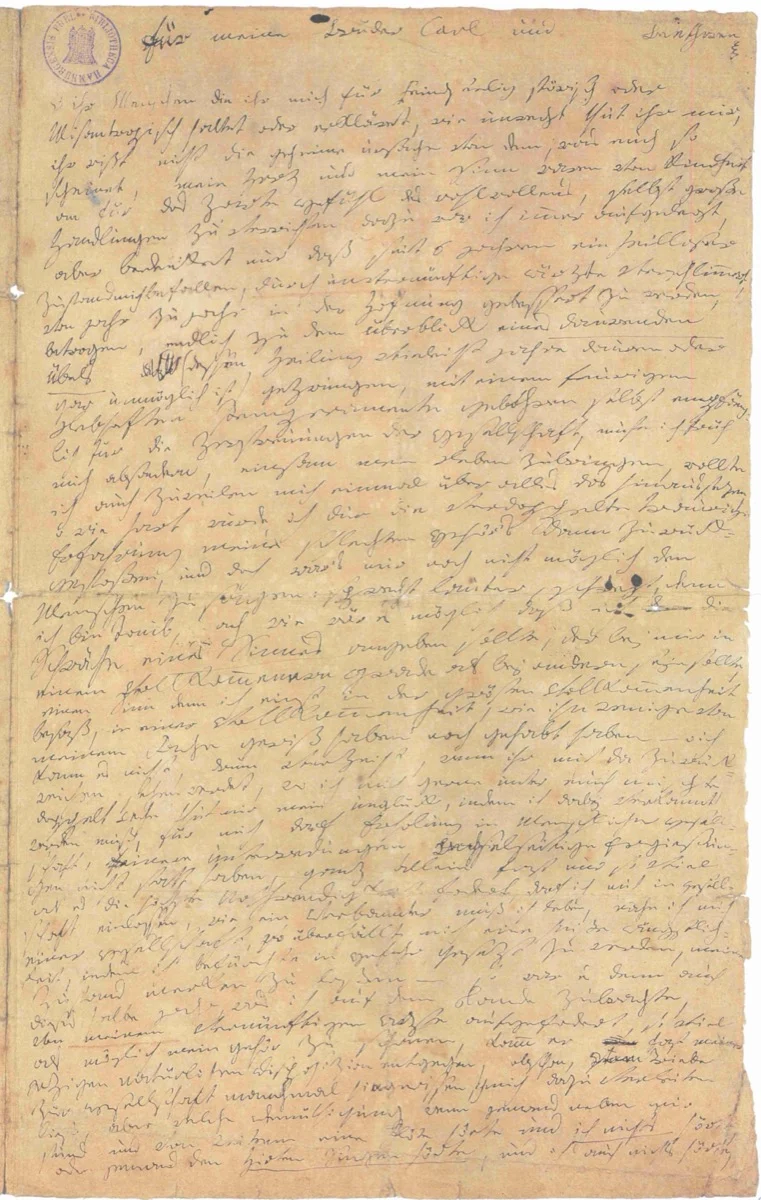 für meine Brüder Carl und Beethowen
o ihr Menschen die ihr mich für Feindseelig störisch oder
Misantropisch haltet oder erkläret, wie unrecht thut ihr mir,
ihr wißt nicht die geheime urßache von dem, was euch so
scheinet, mein Herz und mein Sinn waren von Kindheit
an für das Zarte gefühl des wohlwollens, selbst große
Handlungen zu verrichten dazu war ich imer aufgelegt,
aber bedenket nur daß seit 6 jahren ein heilloser
Zustand mich befallen, durch unvernünftige ärzte verschlimert,
von jahr zu jahr in der Hofnung gebessert zu werden,
betrogen, endlich zu dem überblick eines daurenden
Übels (dessen Heilung vieleicht jahre dauren oder
gar unmöglich ist) gezwungen, mit einem feurigen
Lebhaften Temperamente gebohren selbst empfäng-
lich für die Zerstreuungen der gesellschaft, muste ich früh
mich absondern, einsam mein Leben zubringen, wollte
ich auch zuweilen mich einmal über alles das hinaussezen,
o wie hart wurde ich dur die verdoppelte traurige
Erfahrung meines schlechten gehör's dann zurück-
gestoßen, und doch war's mir noch nicht möglich den
Menschen zu sagen: sprecht lauter, schreyt, denn
ich bin Taub, ach wie wär es möglich daß ich die
Schwäche eines Sinnes angeben sollte, der bey mir in
einem Vollkomenern grade als bey andern seyn sollte,
einen Sinn den ich einst in der grösten Vollkomenheit
besaß, in einer Vollkomenheit, wie ihn wenige von
meinem Fache gewiß haben noch gehabt haben – o ich
kann es nicht, drum verzeiht, wenn ihr mich da zurück-
weichen sehen werdet, wo ich mich gerne unter euch mischte,
doppelt wehe thut mir mein unglück, indem ich dabey verkannt
werden muß, für mich darf Erholung in Menschlicher gesell-
schaft, feinere unterredungen, wechselseitige Ergießun-
gen nicht statt haben, ganz allein fast nur so viel
als es die höchste Nothwendigkeit fodert, darf ich mich in gesell-
schaft einlassen, wie ein Verbannter muß ich leben, nahe ich mich
einer gesellschaft, so überfällt mich eine heiße ängstlich-
keit, indem ich befürchte in gefahr gesezt zu werden, meinen
Zustand merken zu laßen – so war es denn auch
dieses halbe jahr was ich auf dem Lande zubrachte,
von meinem vernünftigen arzte aufgefodert, so viel
als möglich mein gehör zu schonen, kamm er fast meiner
jezigen natürlichen disposizion entgegen, obschon, vom Triebe
zur gesellschaft manchmal hingerissen, ich mich dazu verleiten
ließ, aber welche demüthigung wenn jemand neben mir
stund und von weitem eine flöte hörte und ich nichts hörte,
oder jemand den Hirten Singen hörte, und ich auch nichts hörte,